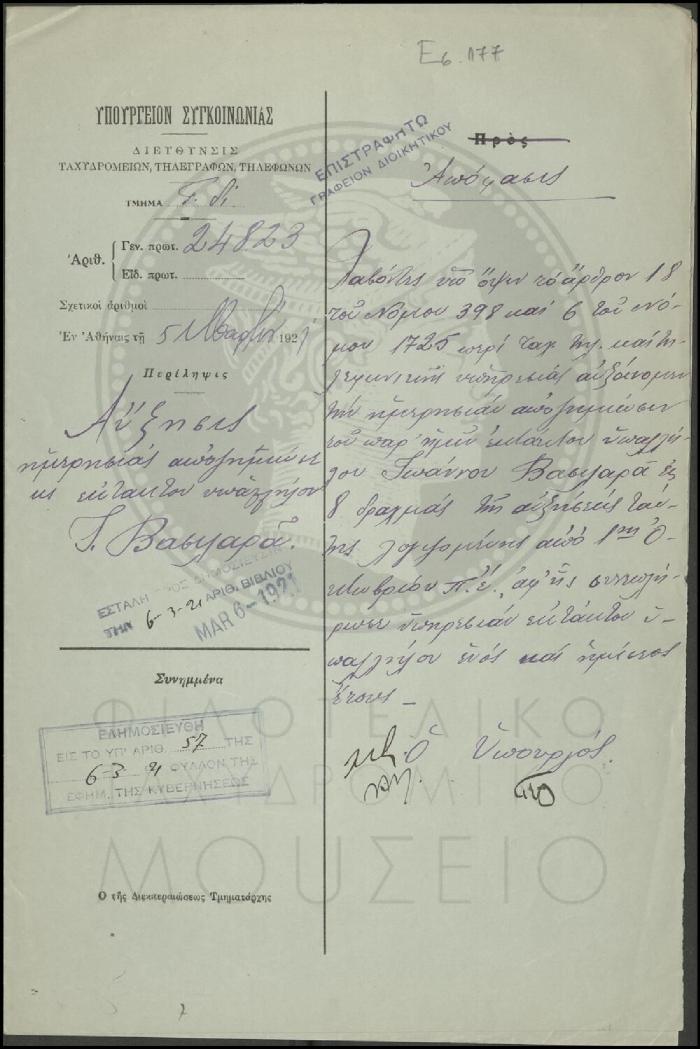 Ε6.177
ΥΠΟΥΡΓΕΙΟΝ ΣΥΓΚΟΙΝΩΝΙΑΣ
ΔΙΕΥΘΥΝΣΙΣ
ΤΑΧΥΔΡΟΜΕΙΩΝ, ΤΗΛΕΓΡΑΦΩΝ, ΤΗΛΕΦΩΝΩΝ
ΤΜΗΜΑ
Ἀριθ. Γεν. πρωτ. 24823
Εἰδ. πρωτ.
Σχετικοὶ ἀριθμοὶ
Ἐν Ἀθήναις τῇ 5 Μαρτίου 1921
Περίληψις
Αὔξησις
ἡμερησίας ἀποζημιώσε
ως ἐκτάκτου ὑπαλλήλου
Ι. Βασιλαρᾶ.
ΕΣΤΑΛΗ ΠΡΟΣ ΔΗΜΟΣΙΕΥΣΙΝ
ΤΗΝ 6-3-21 ΑΡΙΘ. ΒΙΒΛΙΟΥ
MAR 6-1921
Συνημμένα
ΕΔΗΜΟΣΙΕΥΘΗ
ΕΙΣ ΤΟ ΥΠ' ΑΡΙΘ. 57 ΤΗΣ
6-3 21 ΦΥΛΛΟΝ ΤΗΣ
ΕΦΗΜ. ΤΗΣ ΚΥΒΕΡΝΗΣΕΩΣ
Ὁ τῆς Διεκπεραιώσεως Τμηματάρχης
ΕΠΙΣΤΡΑΦΗΤΩ
ΓΡΑΦΕΙΟΝ ΔΙΟΙΚΗΤΙΚΟΥ
Πρὸς
Ἀπόφασις
Λαβόντες ὑπ' ὄψιν τὸ ἄρθρον 18
τοῦ Νόμου 398 καὶ 6 τοῦ Νό-
μου 1725 περὶ ταχ. τηλ. καὶ τη-
λεφωνικῆς ὑπηρεσίας αὐξάνομεν
τὴν ἡμερησίαν ἀποζημίωσιν
τοῦ παρ' ἡμῖν ἐκτάκτου ὑπαλλή-
λου Ἰωάννου Βασιλαρᾶ εἰς
8 δραχμὰς τῆς αὐξήσεως ταύ-
της λογιζομένης ἀπὸ 1ης Ὀ-
κτωβρίου π.ἔ., ἀφ' ἧς συνεπλή-
ρωσεν ὑπηρεσίαν ἐκτάκτου ὑ-
παλλήλου ἑνὸς καὶ ἡμίσεος
ἔτους
Ὁ Ὑπουργός.
ΦΙΛΟΤΕΛΙΚΟ
ΤΑΧΥΔΡΟΜΙΚΟ
ΜΟΥΣΕΙΟ